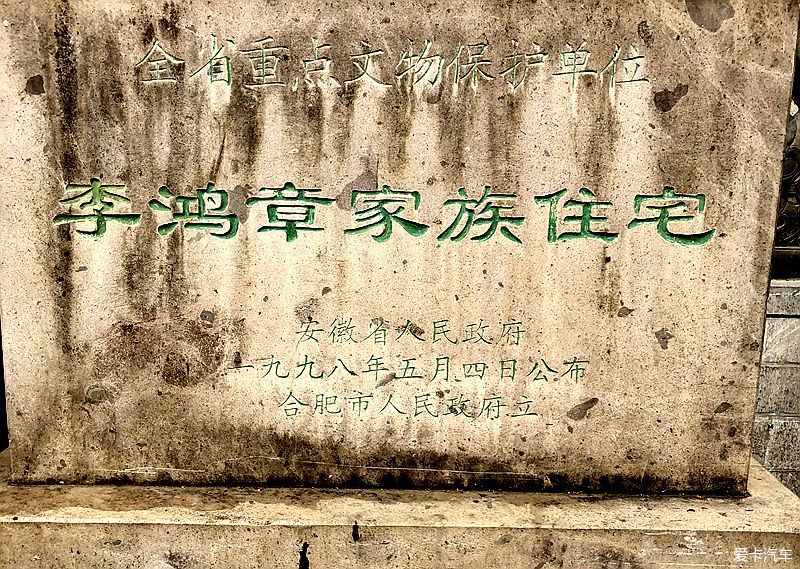 全省重点文物保护单位
李鸿章家族住宅
安徽省人民政府
一九九八年五月四日公布
合肥市人民政府立
爱卡汽车